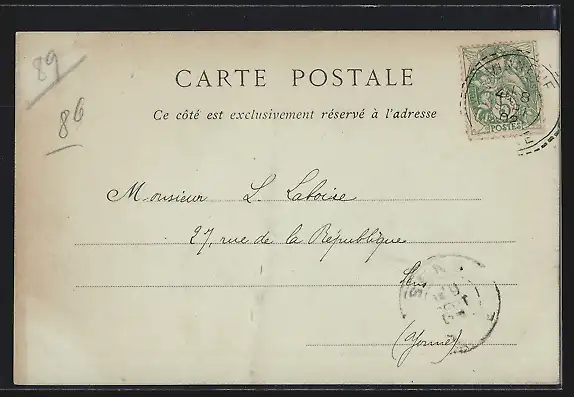 89
86
CARTE POSTALE
Ce côté est exclusivement réservé à l'adresse
POSTES
Monsieur L. Laboise
27, rue de la République
Sens
(Yonne)